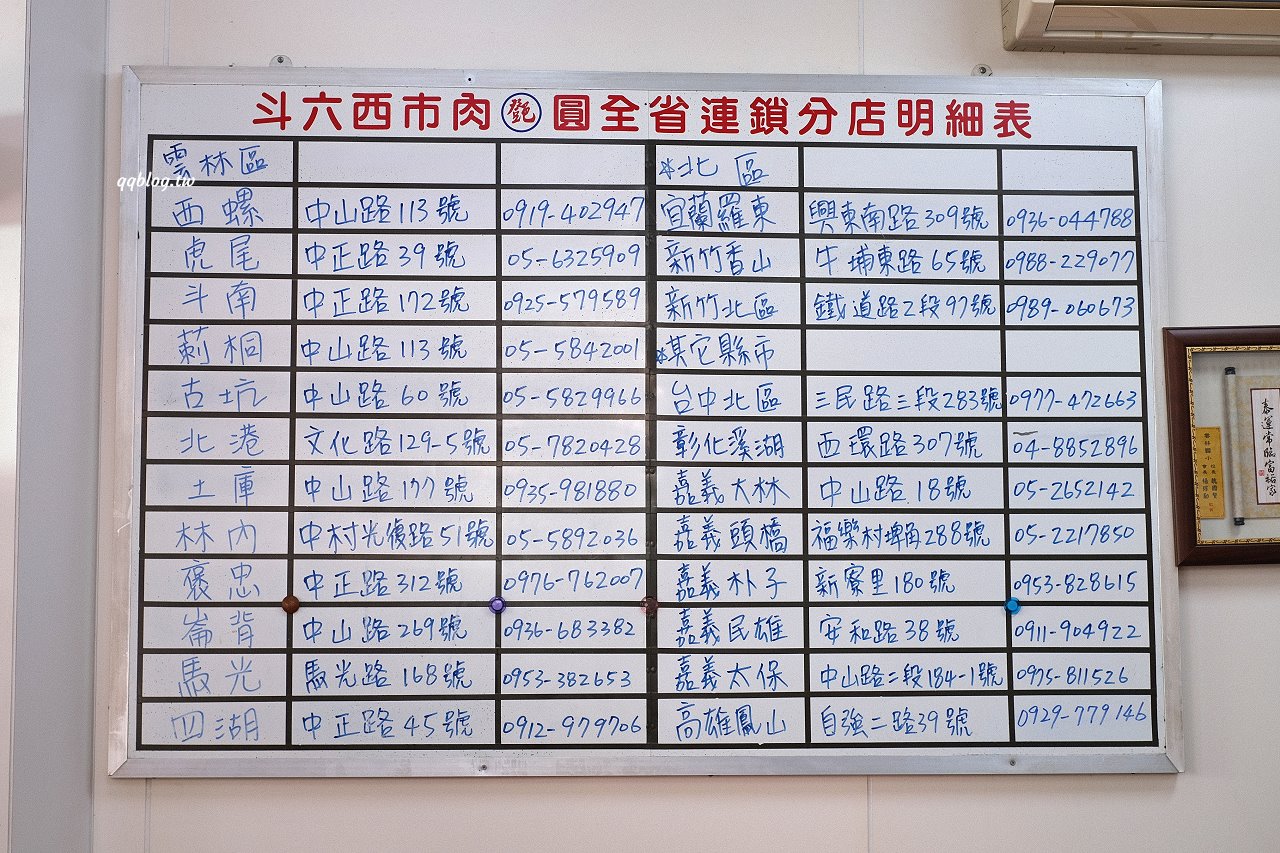 斗六西市肉鄧圓全省連鎖分店明細表
雲林區
西螺 中山路113號 0919-402947
虎尾 中正路39號 05-6325909
斗南 中正路172號 0925-579589
莿桐 中山路113號 05-5842001
古坑 中山路60號 05-5829966
北港 文化路129-5號 05-7820428
土庫 中山路177號 0935-981880
林內 中村光復路51號 05-5892036
褒忠 中正路312號 0976-762007
崙背 中山路269號 0936-683382
馬光 馬光路168號 0953-382653
四湖 中正路45號 0912-979706
*北區
宜蘭羅東 興東南路309號 0936-044788
新竹香山 牛埔東路65號 0988-229077
新竹北區 鐵道路2段97號 0989-060673
*其它縣市
台中北區 三民路三段283號 0977-472663
彰化溪湖 西環路307號 04-8852896
嘉義大林 中山路18號 05-2652142
嘉義頭橋 福樂村埤角288號 05-2217850
嘉義朴子 新寮里180號 0953-828615
嘉義民雄 安和路38號 0911-904922
嘉義太保 中山路二段184-1號 0975-811526
高雄鳳山 自強二路39號 0929-779146
qqblog.tw
泰運常臨富裕家